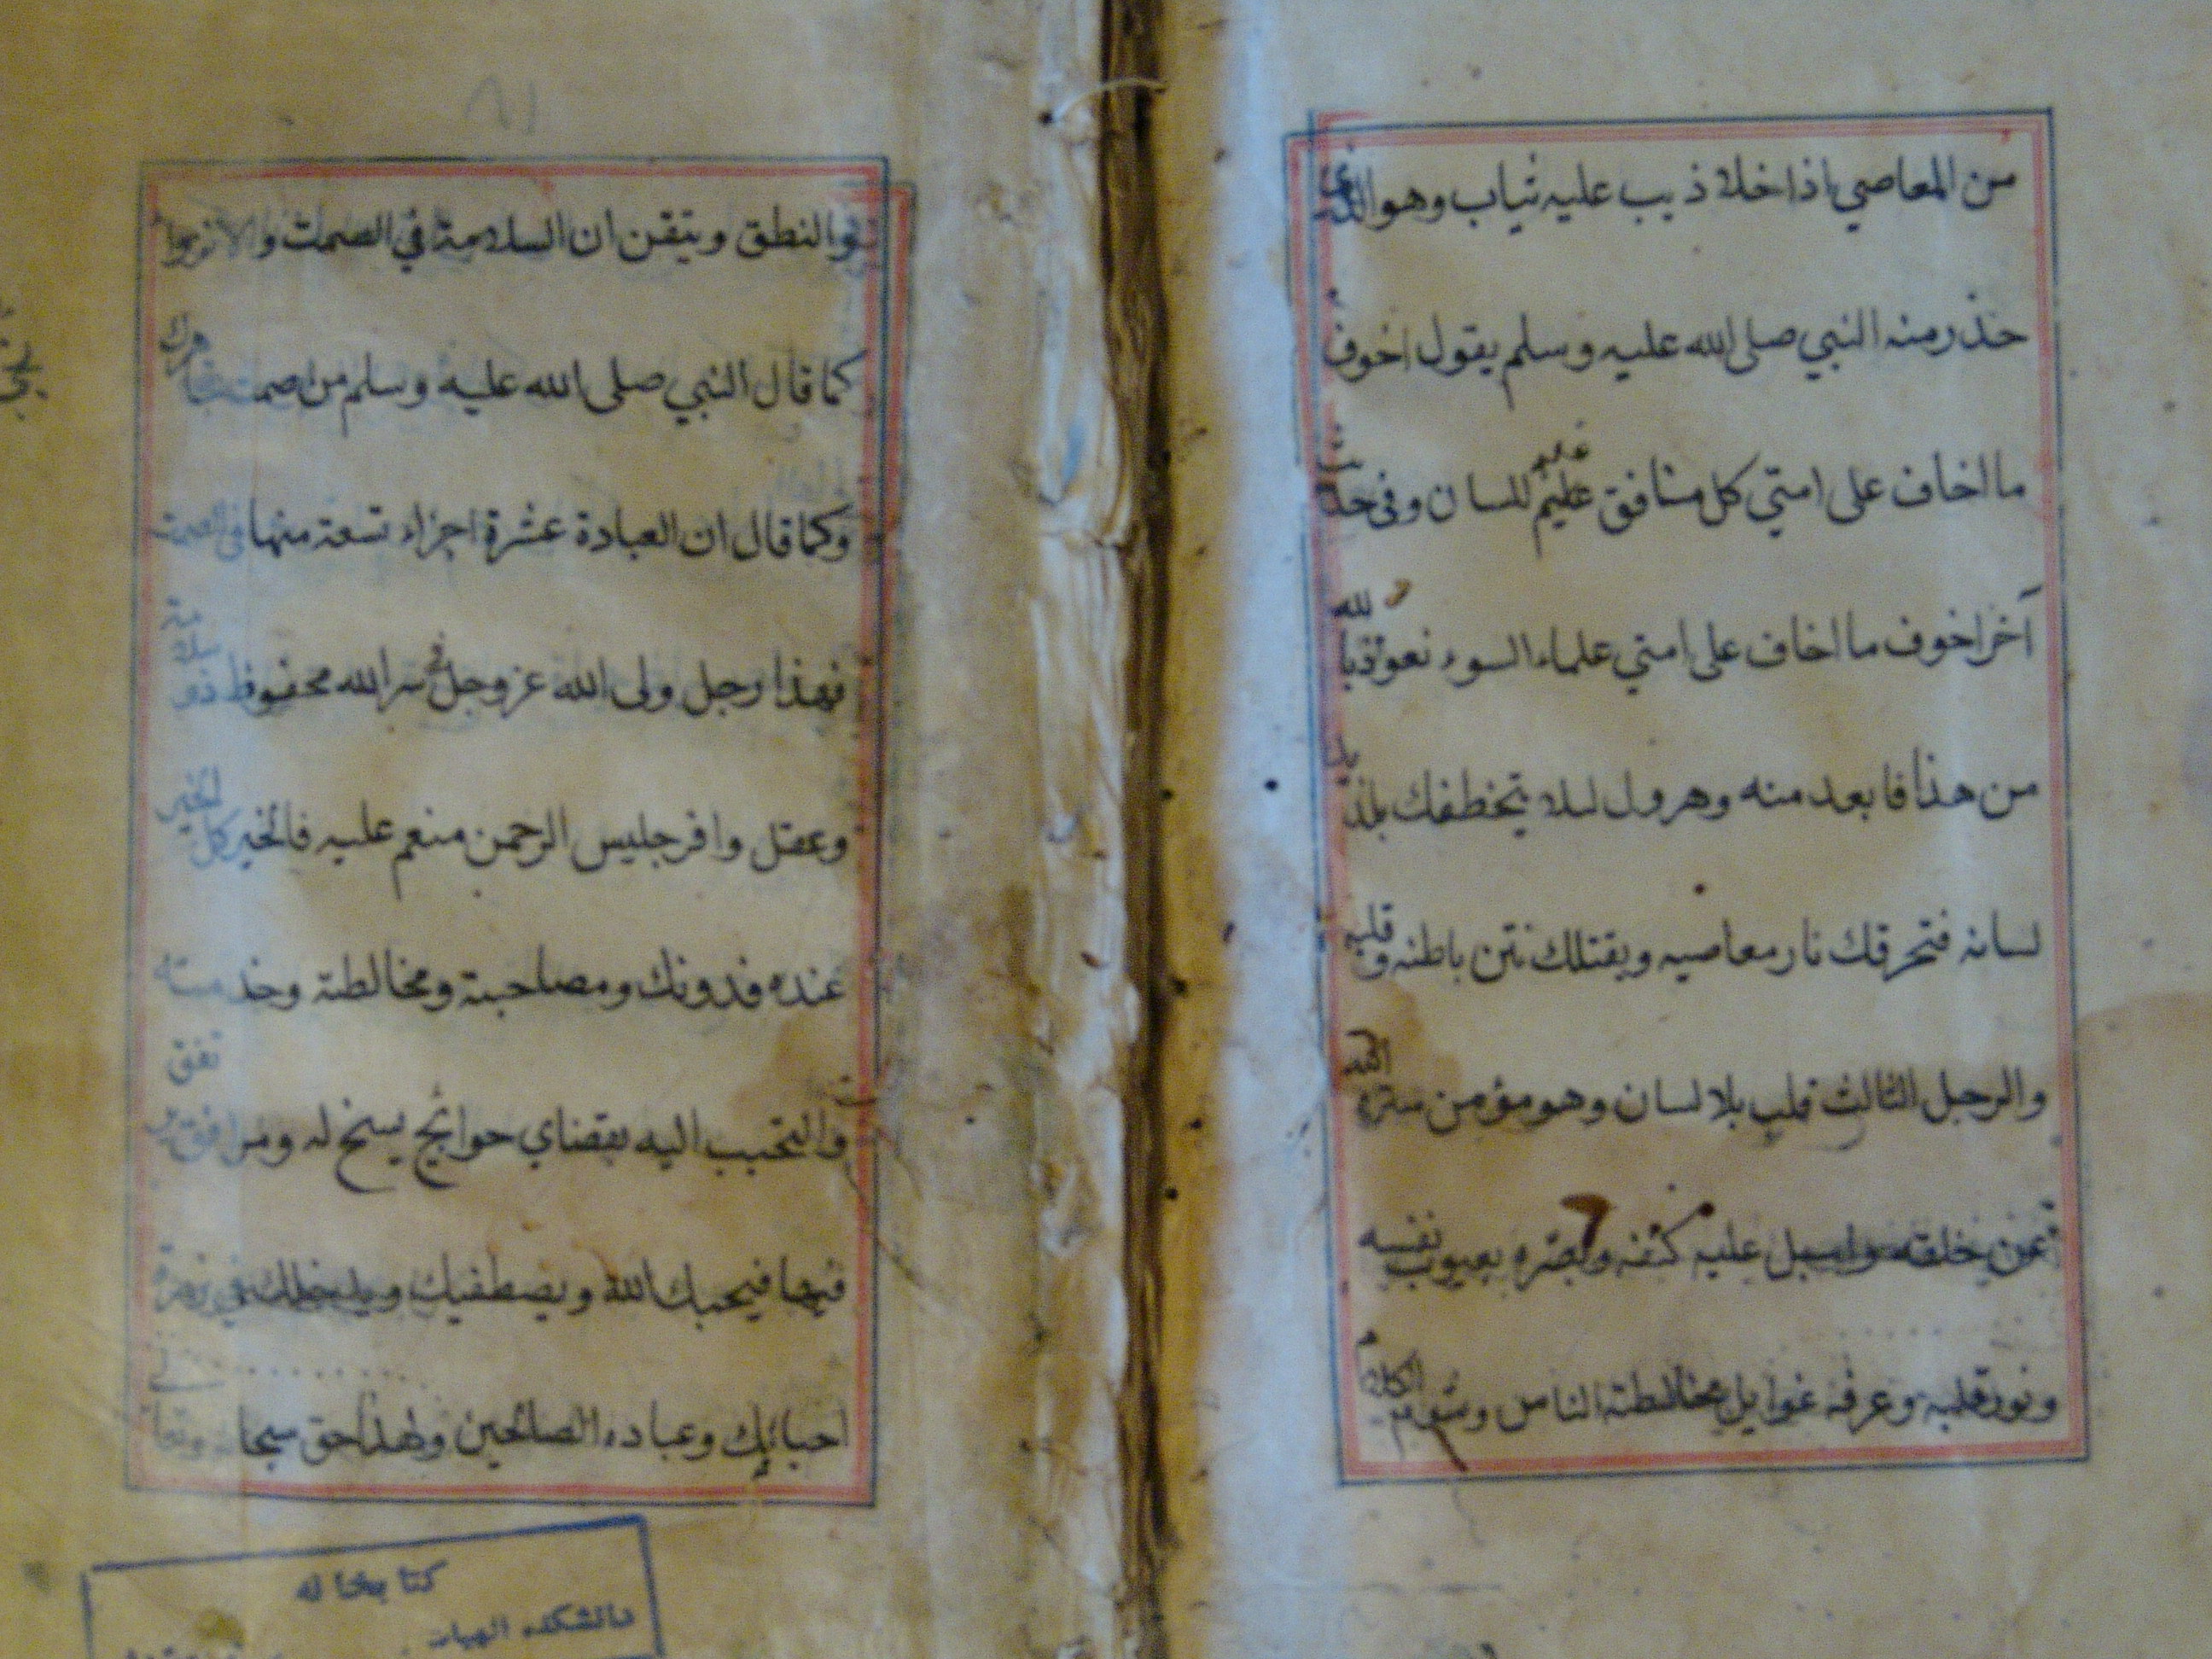 من المعاصي اذا خلا ذيب عليه ثياب وهو الذي
حذر منه النبي صلى الله عليه وسلم يقول اخوف
ما اخاف على امتي كل منافق عليم للسان وفي حديث
آخر اخوف ما اخاف على امتي علماء السوء نعوذ بالله
من هذا فابعد منه وهرول لئلا يتخطفك بلذيذ
لسانه فتحرقك نار معاصيه ويقتلك نتن باطنه وقلبه
والرجل الثالث قلب بلا لسان وهو مؤمن ستره الله
عن خلقه واسبل عليه كنفه وبصره بعيوب نفسه
ونور قلبه وعرفه غوايل مخالطة الناس وشوم الكلام
والنطق وتيقن ان السلامة في الصمت والانزوا
كما قال النبي صلى الله عليه وسلم من صمت نجا
وكما قال ان العبادة عشرة اجزاء تسعة منها في الصمت
فهذا رجل ولى الله عز وجل في سر الله محفوظ ذو سلامة
وعقل وافر جليس الرحمن منعم عليه فالخير كل الخير
عنده فدونك ومصاحبة ومخالطة وخدمته
والتحبب اليه بقضاي حوائج يسنح له ومرافق يرتفق
فيها فيحبك الله ويصطفيك ويدخلك في زمرة
احبائك وعباده الصالحين ولهذا حق سبحانه وتعالى
كتابخانه
دانشكده الهيات